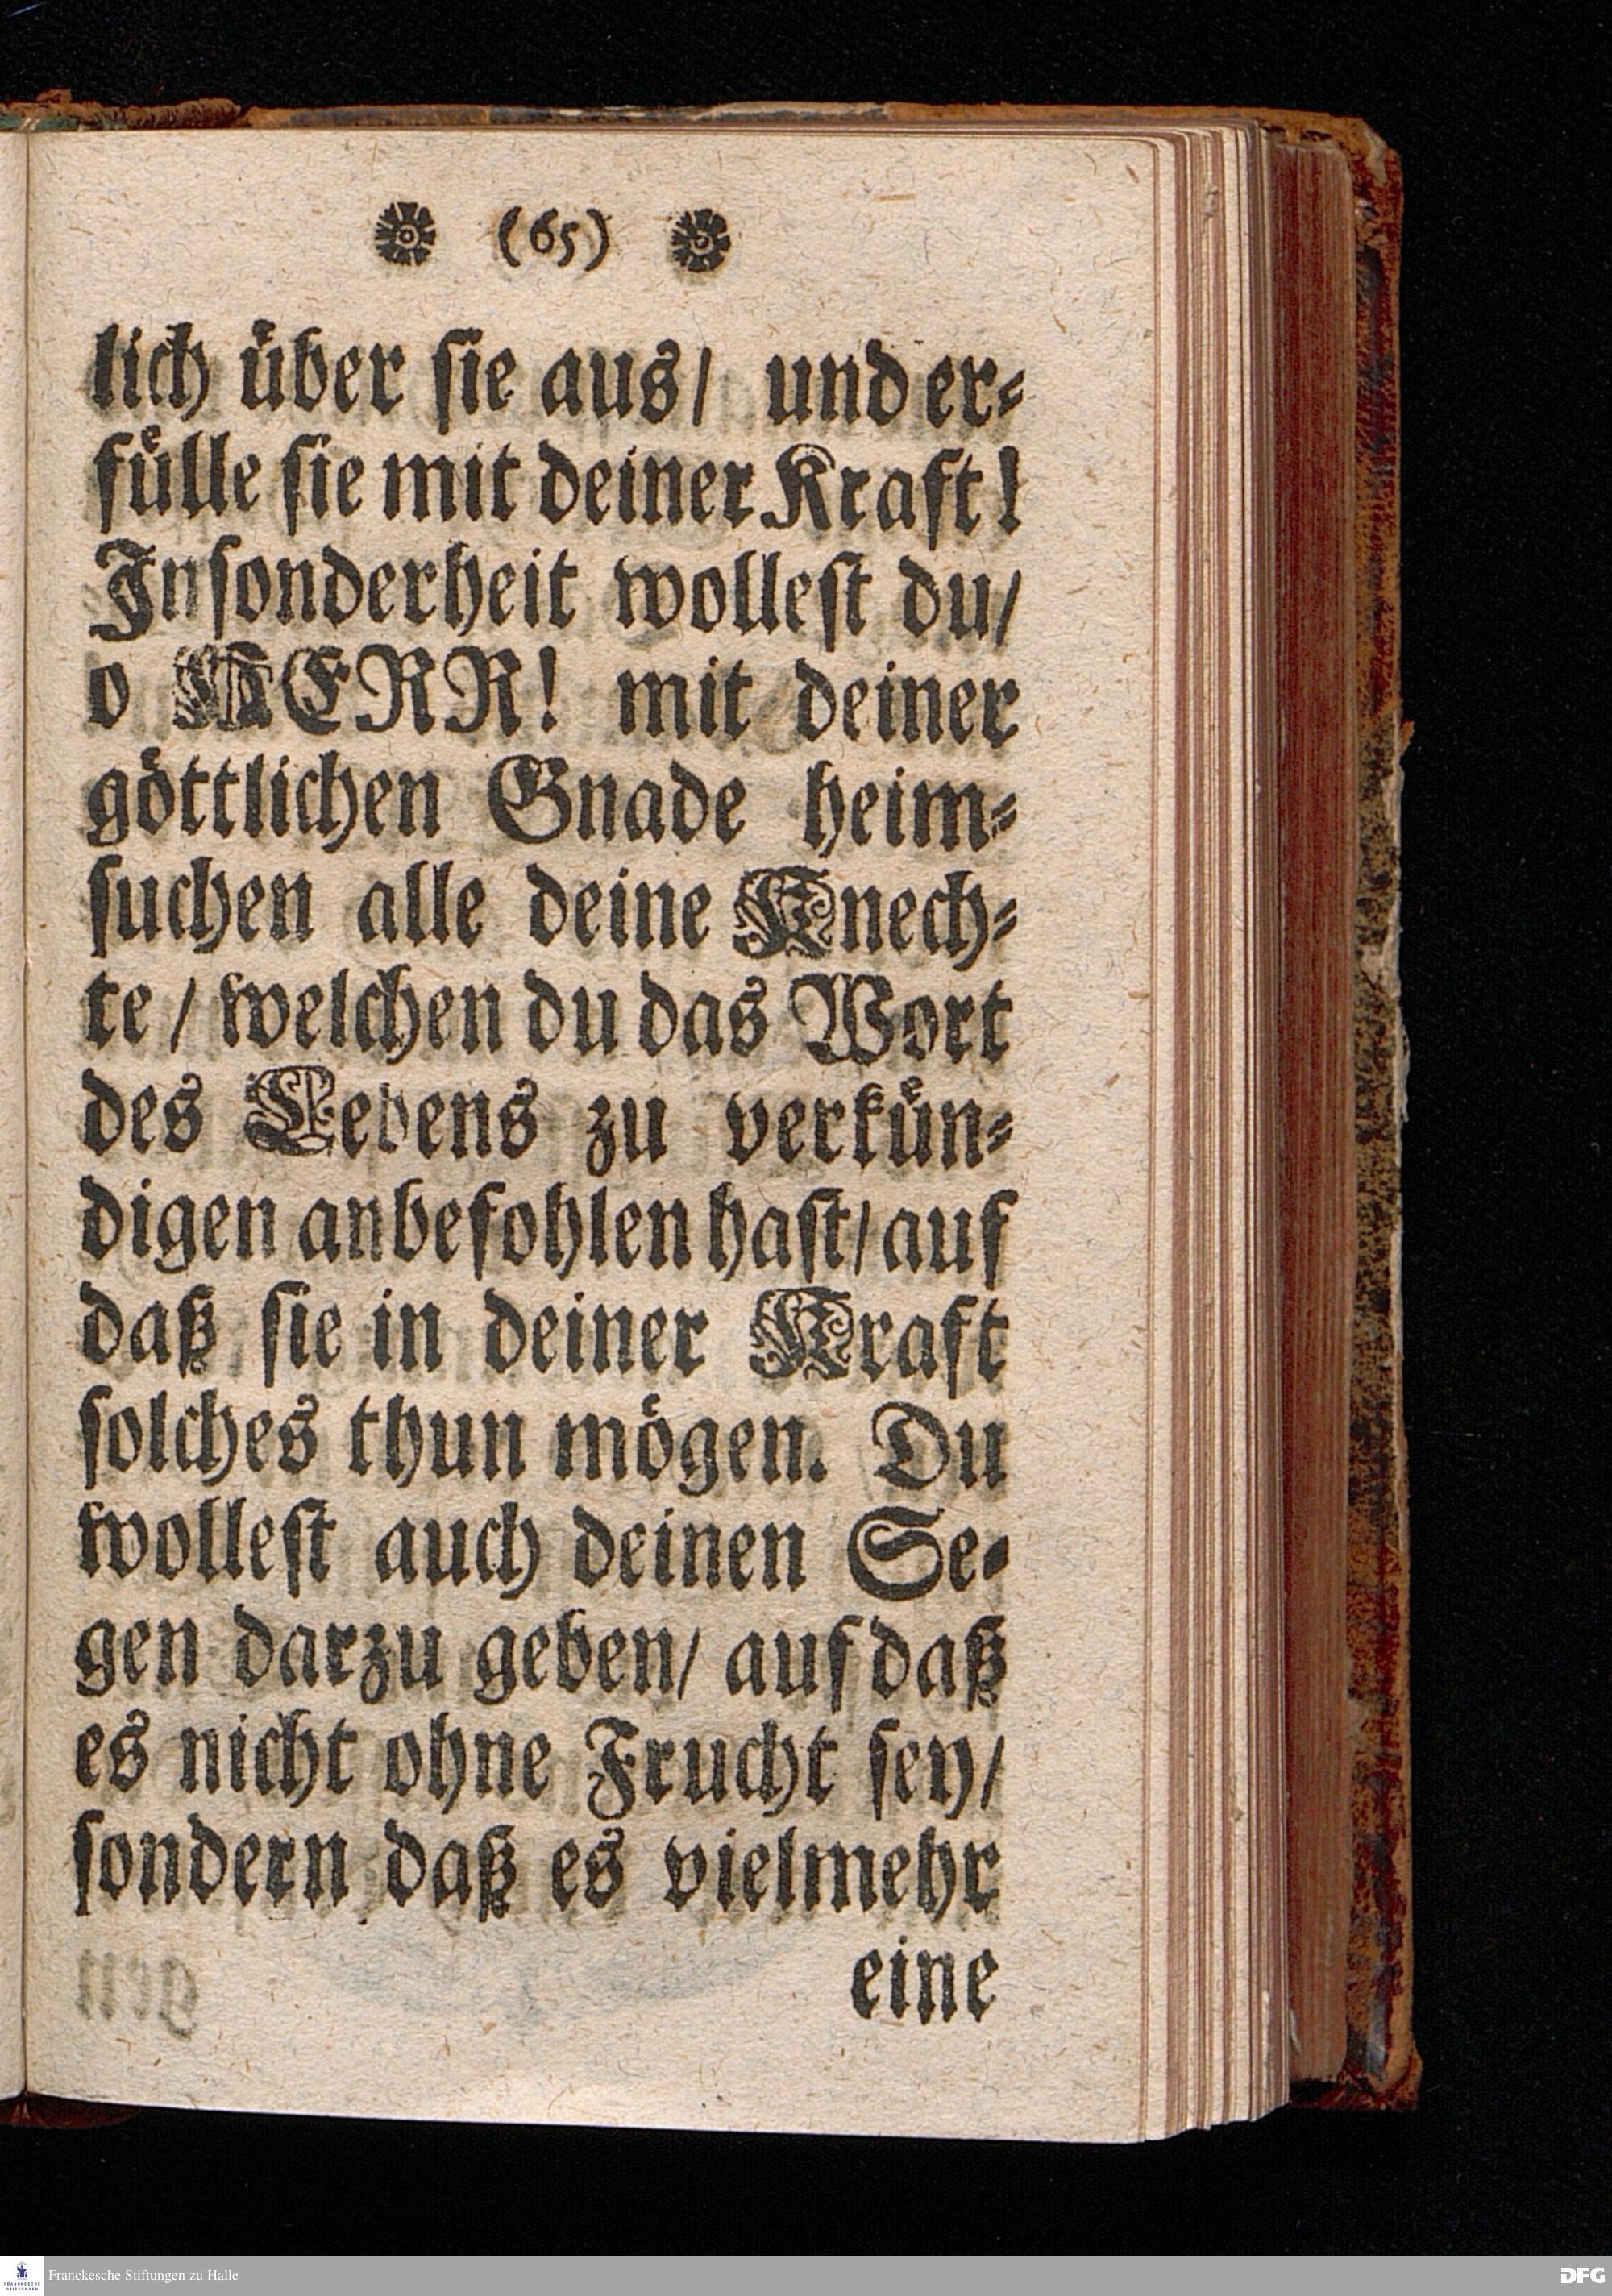 (65)
lich über sie aus/ und er-
fülle sie mit deiner Kraft!
Insonderheit wollest du/
o HERR! mit deiner
göttlichen Gnade heim-
suchen alle deine Knech-
te/ welchen du das Wort
des Lebens zu verkün-
digen anbefohlen hast/ auf
daß sie in deiner Kraft
solches thun mögen. Du
wollest auch deinen Se-
gen darzu geben/ auf daß
es nicht ohne Frucht sey/
sondern daß es vielmehr
eine
FRANCKESCHE
STIFTUNGEN
Franckesche Stiftungen zu Halle
DFG